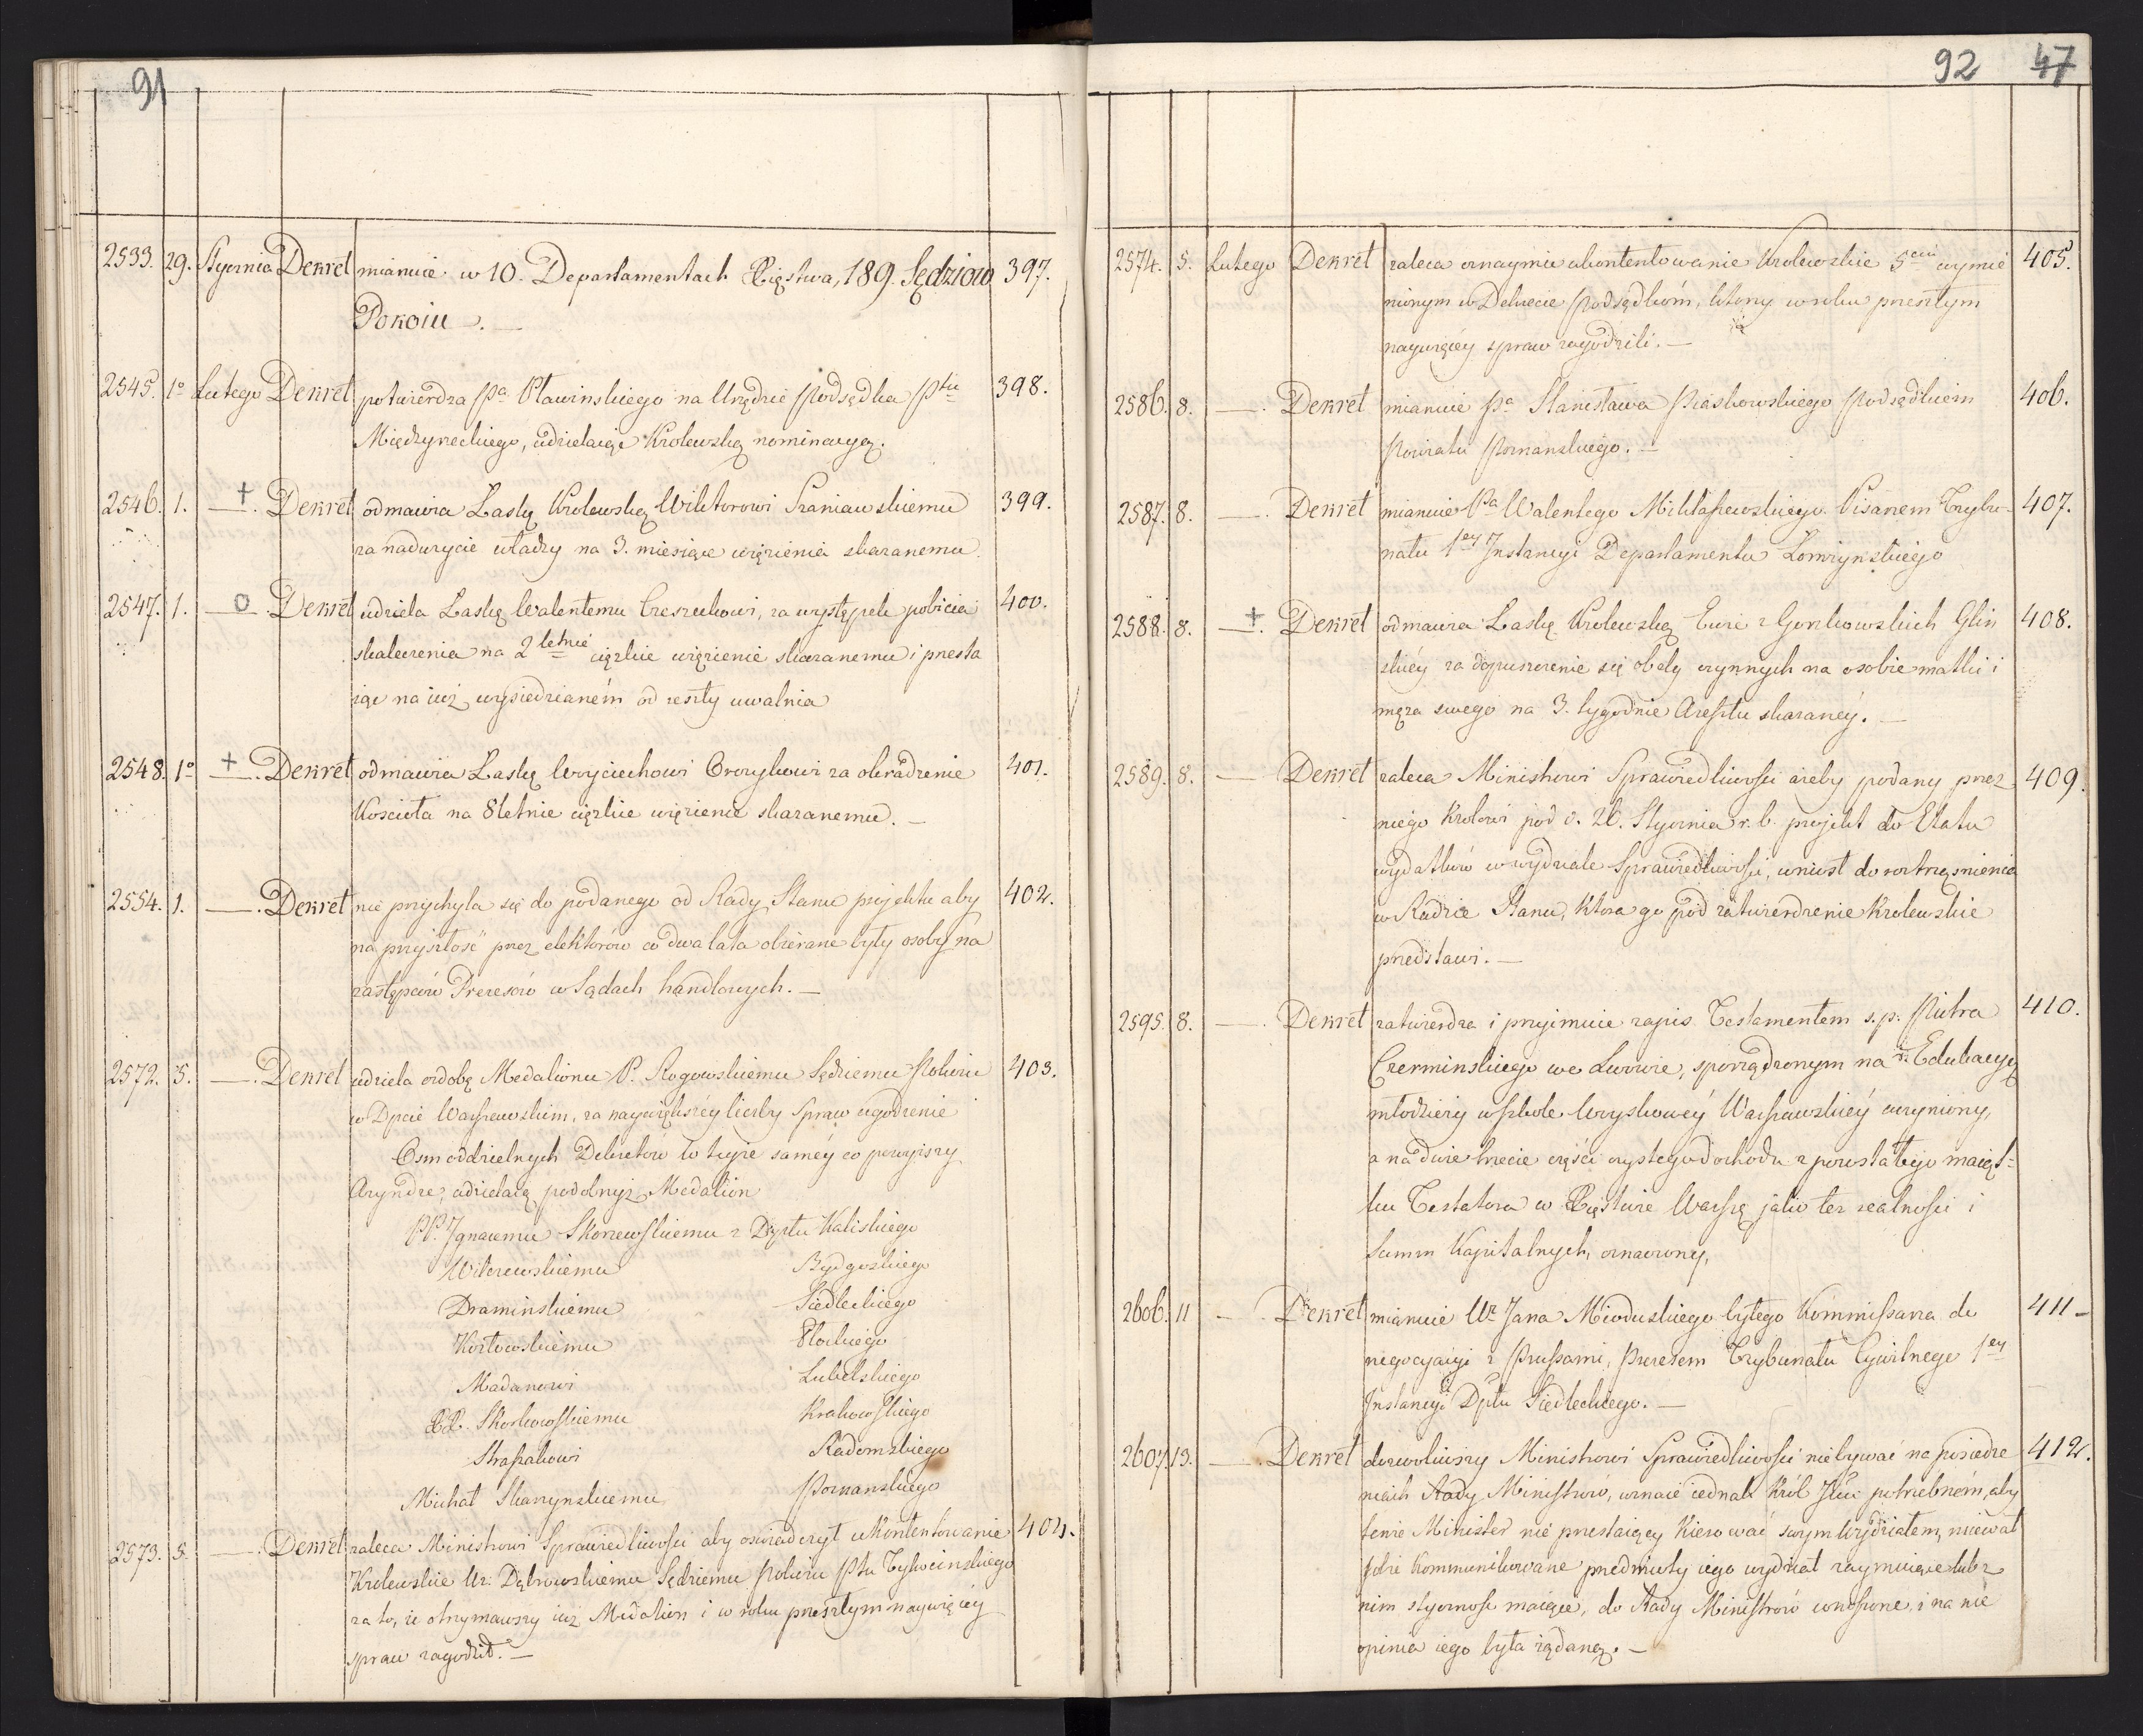 91
2533. 29. Stycznia Dekret mianuie w 10. Departamentach Xięstwa, 189. Sędziow 397.
Pokoiu. —
2545. 1º Lutego Dekret potwierdza Pa Pławinskiego na Urzędzie Podsędka Ptu 398.
Międzyrzeckiego, udzielaiąc Krolewską nominacyą.
2546. 1. — + Dekret odmawia Łaskę Krolewską Wiktorowi Szaniawskiemu 399.
za nadużycie władzy na 3. miesiące więzienia skazanemu.
2547. 1. — O Dekret udziela Łaskę Walentemu Czeszukowi, za występek pobicia 400.
skaleczenia na 2 letnie ciężkie więzienie skazanemu i przesta
iąc na iuż wysiedzianém od reszty uwalnia
2548. 1º — + Dekret odmawia Łaskę Woyciechowi za okradzenie 401.
Kościoła na 8letnie ciężkie więzienie skazanemu. —
2554. 1. — Dekret nie przychyla się do podanego od Rady Stanu projektu aby 402.
na przyszłość przez elektorów co dwa lata obierane były osoby na
zastępców Prezesów w Sądach handlowych. —
2572. 5. — Dekret udziela ozdobę Medalionu P. Rogowskiemu Sędziemu Pokoiu 403.
w Dpcie Warszawskim, za naywiększéy liczby Spraw ugodzenie
Osm oddzielnych Dekretów w teyże saméy co powyiszy
udzielaią podobnyż Medalion
PP. Ignacemu Skorzewskiemu z Dptu Kaliskiego
Bydgoskiego
Draminskiemu Siedleckiego
Kozłowskiemu Płockiego
Madanowi Lubelskiego
XX. Skorkowskiemu Krakowskiego
Straszakowi Radomskiego
Michał Skarzynskiemu Poznanskiego
2573. 5. — Dekret zaleca Ministrowi Sprawiedliwosci aby oswiadczył ukontentowanie 404.
Krolewskie Ur: Dąbrowskiemu Sędziemu Pokoiu Ptu Tykocinskiego
za to, iż otrzymawszy iuż Medalion i w roku przeszłym naywięcéy
spraw zagodził. —
92 47
2574. 5. Lutego Dekret zaleca oznaymic ukontentowanie Krolewskie 5ciu wymie 405.
nionym w Dekrecie Podsędkóm, ktorzy w roku przeszłym
naywięcéy spraw zagodzili. —
2586. 8. — Dekret mianuie Pa Stanisława Piaskowskiego Podsędkiem 406.
Powiatu Poznanskiego. —
2587. 8. — Dekret mianuie Pa Walentego Mikłaszewskiego Pisarzem Trybu- 407.
nału 1ey Instancyi Departamentu Łomżynskiego
2588. 8. — + Dekret odmawia Łaskę Krolewską Ewie z Gorskowskich Glin 408.
skiéy za dopuszczenie się obelg czynnych na osobie matki i
męża swego na 3. tygodnie Aresztu skazanéy. —
2589. 8. — Dekret zaleca Ministrowi Sprawiedliwosci ażeby podany przez 409.
niego Krolowi pod d. 26. Stycznia r. b. projekt do Etatu
wydatków w wydziale Sprawiedliwosci, wniosł do roztrząsnienia
w Radzie Stanu, ktora go pod zatwierdzenie Krolewskie
przedstawi. —
2595. 8. — Dekret zatwierdza i przyimuie zapis Testamentem s. p. Piotra 410.
Czerminskiego we Lwowie, sporządzonym na Edukacyą
młodzieży w szkole Woyskowéy Warszawskiéy uczyniony,
a na dwie trzecie części czystego dochodu z pozostałego maiąt-
ku Testatora w Xięstwie Warszę jako też realnosci i
Summ Kapitalnych, oznaczony,
2606. 11 — Dekret mianuie Ur Jana Mioduskiego byłego Kommissarza do 411 -
negocyacyi z Prussami, Prezesem Trybunału Cywilnego 1ey
Instancyi Dptu Siedleckiego. —
2607. 13. — Dekret dozwoliwszy Ministrowi Sprawiedliwosci nie bywać na posiedze 412.
niach Rady Ministrów, uznaie iednak Król potrzebném, aby
tenże Minister nie przestaiący kierować swym Wydziałem, miewał
sobie kommunikowane przedmioty iego wydział zaymuiące lub z
nim stycznosc maiące, do Rady Ministrów wnoszone, i na nie
opinia iego była żądaną. —